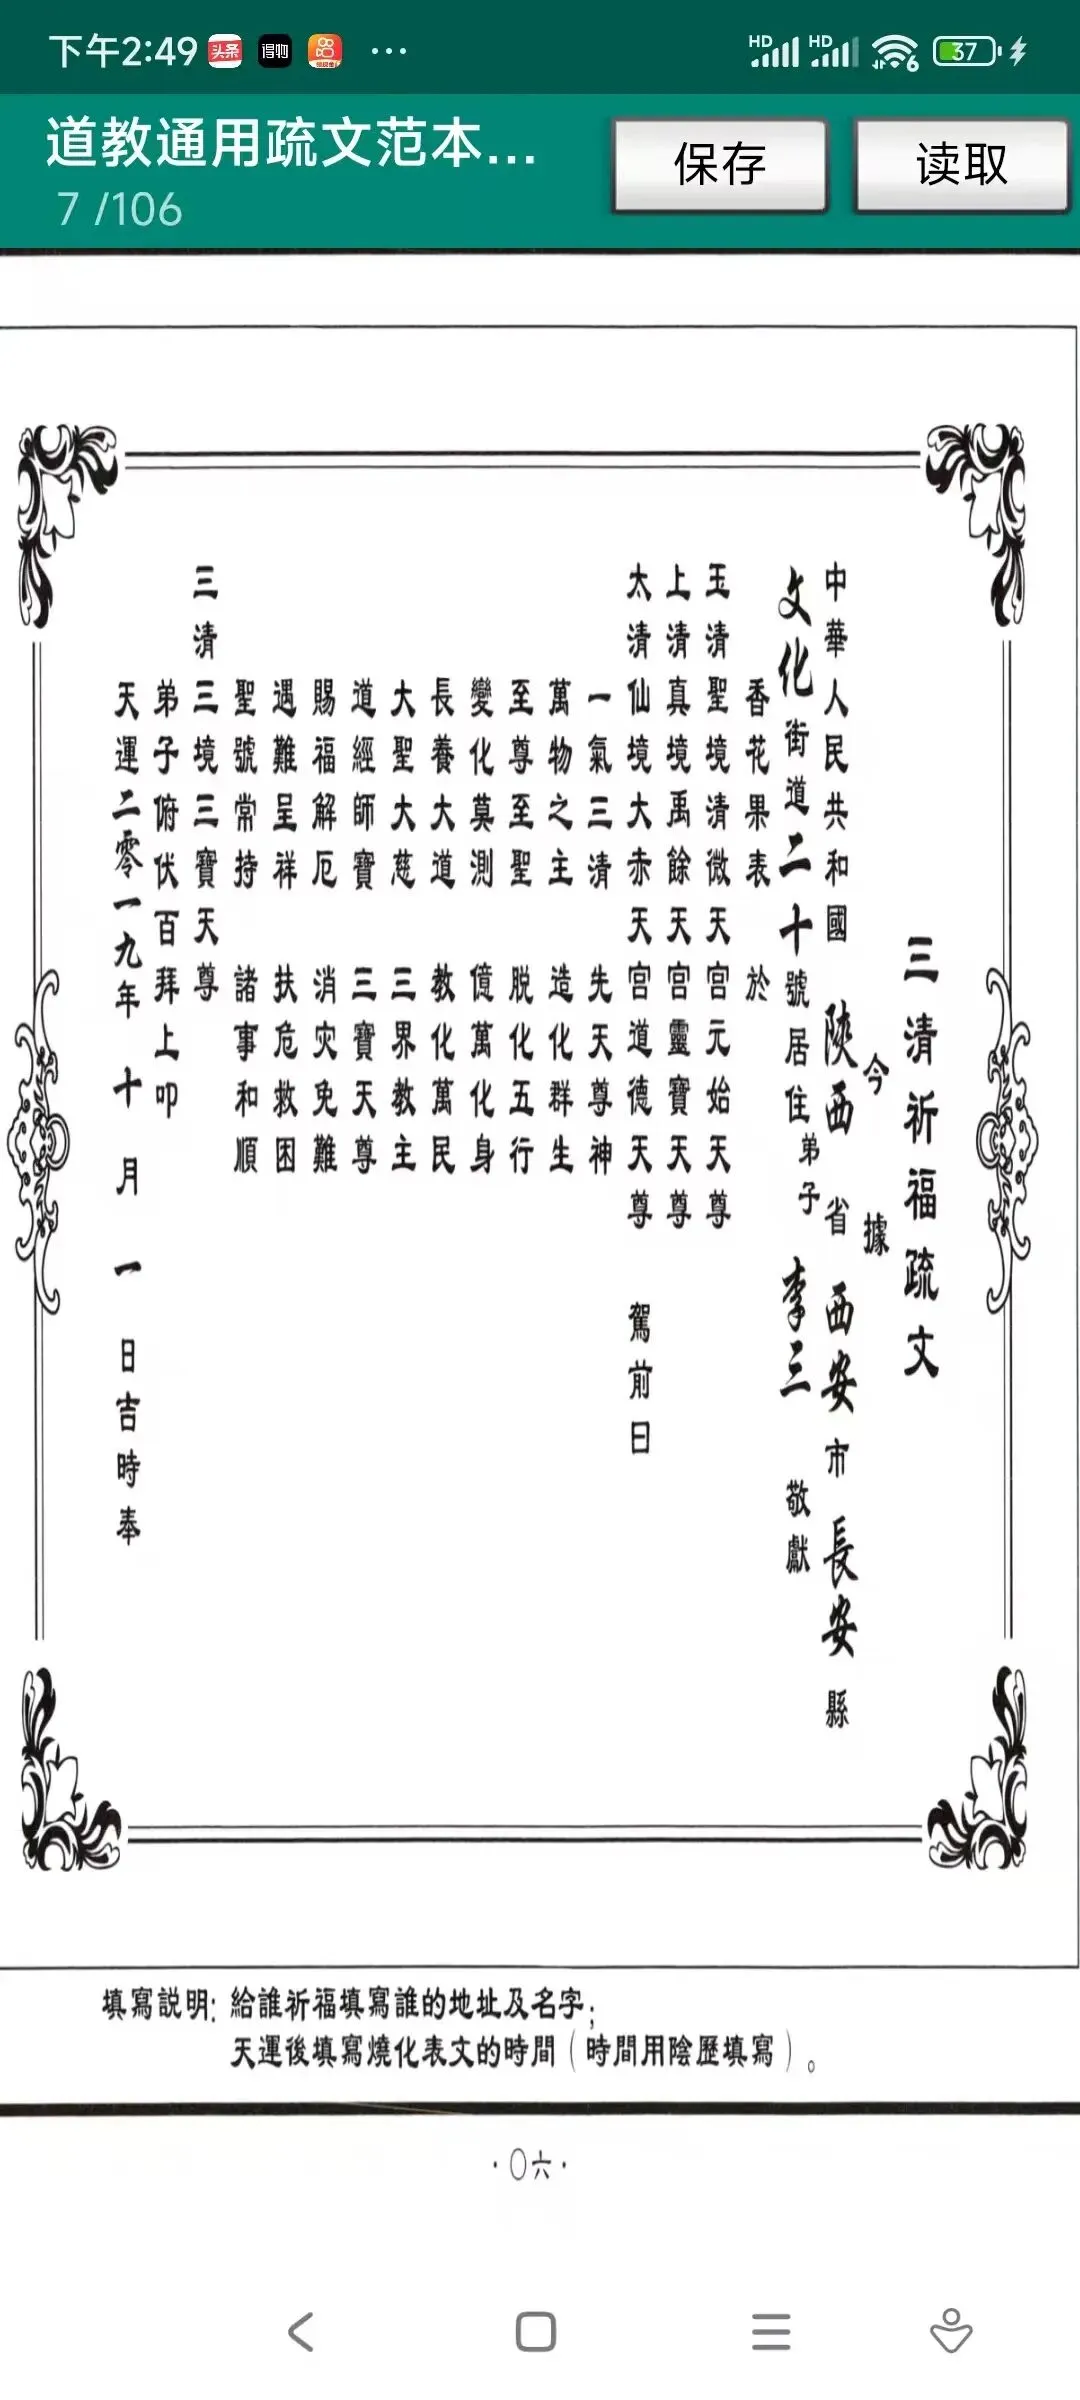 下午2:49 头条 得物 ... HD HD 6 37
道教通用疏文范本...
7 /106
保存
读取
三清祈福疏文
今 據
中華人民共和國 陝西 省 西安 市 長安 縣
文化街道二十號居住 弟子 李三 敬獻
香花果表 於
玉清聖境清微天宮元始天尊
上清真境禹餘天宮靈寶天尊
太清仙境大赤天宮道德天尊 駕前曰
一氣三清 先天尊神
萬物之主 造化群生
至尊至聖 脱化五行
變化莫測 億萬化身
長養大道 教化萬民
大聖大慈 三界教主
道經師寶 三寶天尊
賜福解厄 消灾免難
遇難呈祥 扶危救困
聖號常持 諸事和順
三清三境三寶天尊
弟子俯伏百拜上叩
天運二零一九年 十 月 一 日吉時奉
填寫説明: 給誰祈福填寫誰的地址及名字;
天運後填寫燒化表文的時間(時間用陰歷填寫)。
·〇六·